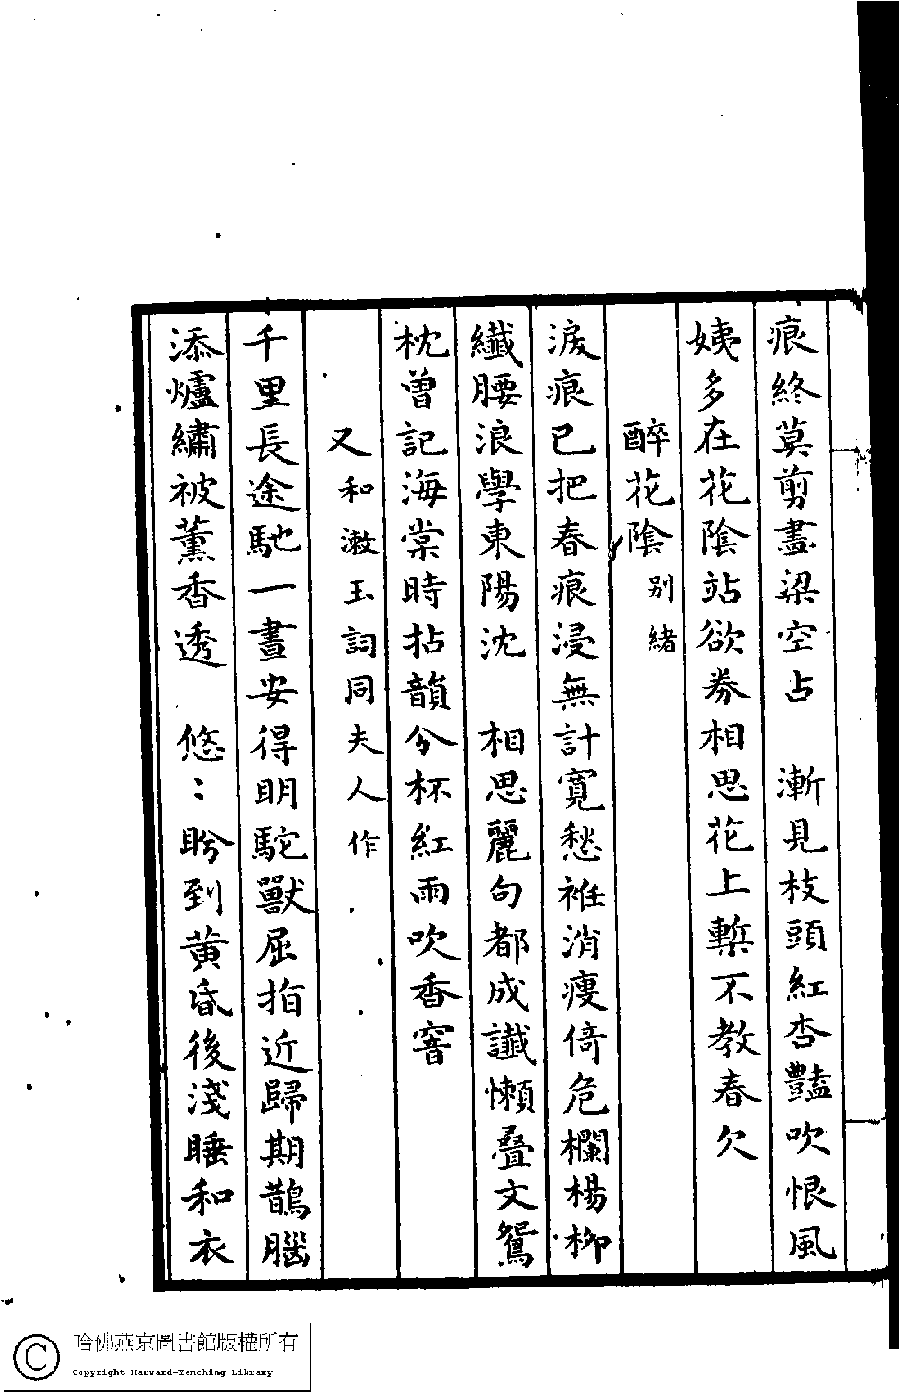 痕終莫剪畫梁空占　漸見枝頭紅杏豔吹恨風
姨多在花陰站欲券相思花上槧不教春欠
醉花陰 別緒
淚痕已把春痕浸無計寬愁袵消瘦倚危欄楊柳
纖腰浪學東陽沈　相思麗句都成讖懶疊文鴛
枕曾記海棠時拈韻分杯紅雨吹香窨
又 和漱玉詞同夫人作
千里長途馳一晝安得明駝獸屈指近歸期鵲腦
添爐繡被薰香透　悠〻盻到黃昏後淺睡和衣
哈佛燕京圖書館版權所有
Copyright Harvard-Yenching Library